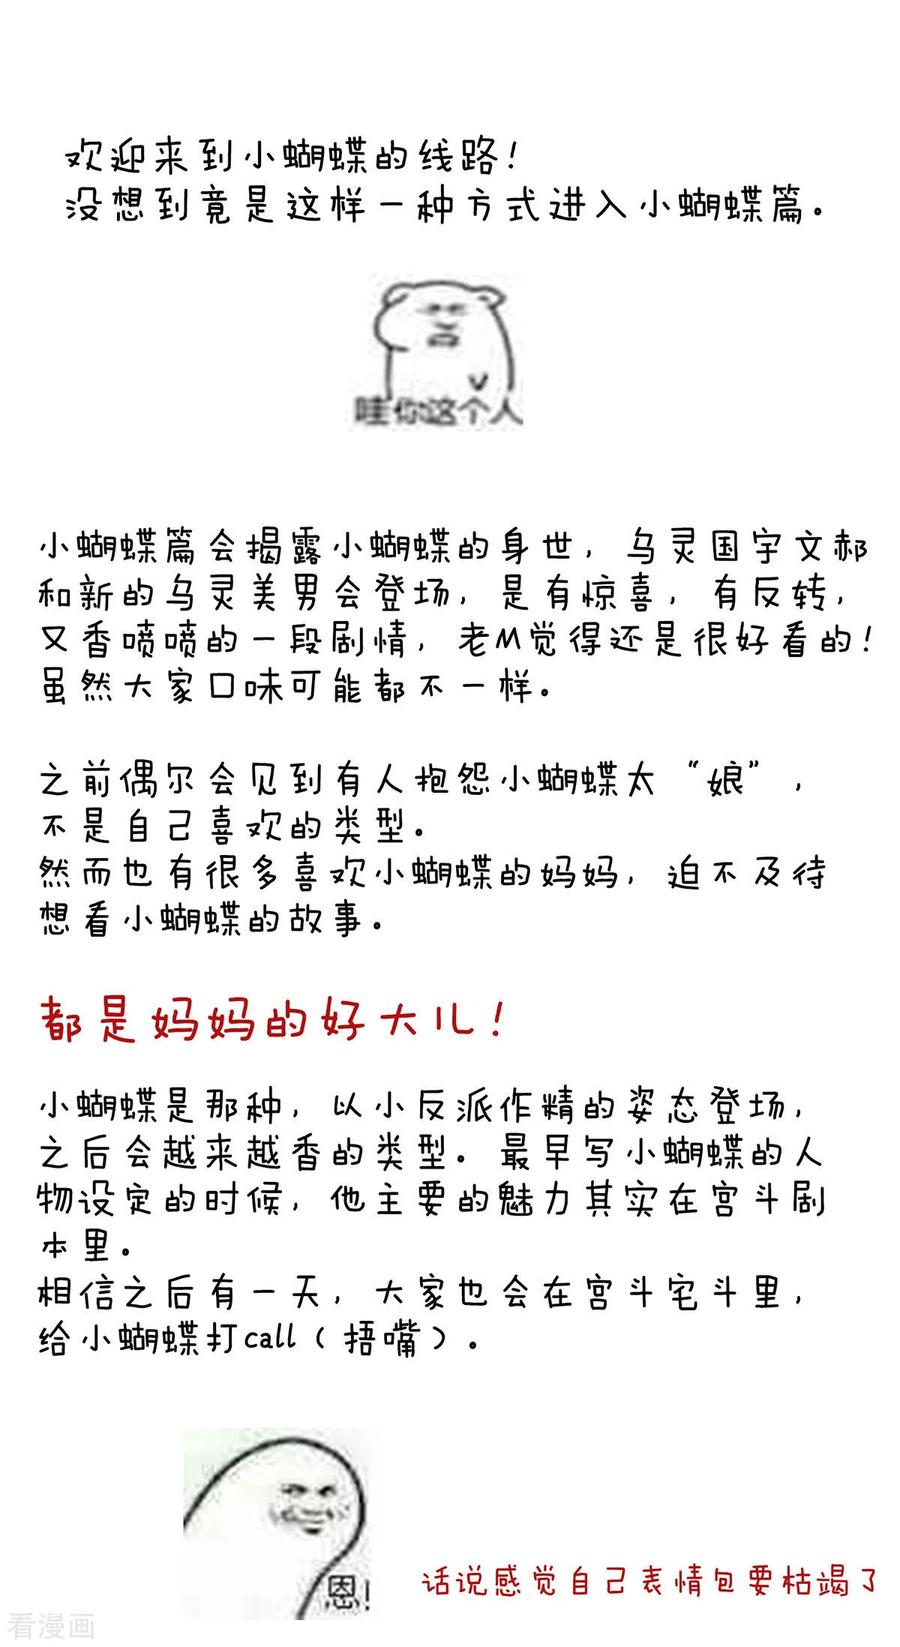 欢迎来到小蝴蝶的线路！
没想到竟是这样一种方式进入小蝴蝶篇。
哇你这个人
小蝴蝶篇会揭露小蝴蝶的身世，乌灵国宇文郝
和新的乌灵美男会登场，是有惊喜，有反转，
又香喷喷的一段剧情，老M觉得还是很好看的！
虽然大家口味可能都不一样。
之前偶尔会见到有人抱怨小蝴蝶太“娘”，
不是自己喜欢的类型。
然而也有很多喜欢小蝴蝶的妈妈，迫不及待
想看小蝴蝶的故事。
都是妈妈的好大儿！
小蝴蝶是那种，以小反派作精的姿态登场，
之后会越来越香的类型。最早写小蝴蝶的人
物设定的时候，他主要的魅力其实在宫斗剧
本里。
相信之后有一天，大家也会在宫斗宅斗里，
给小蝴蝶打call（捂嘴）。
恩！
话说感觉自己表情包要枯竭了
看漫画